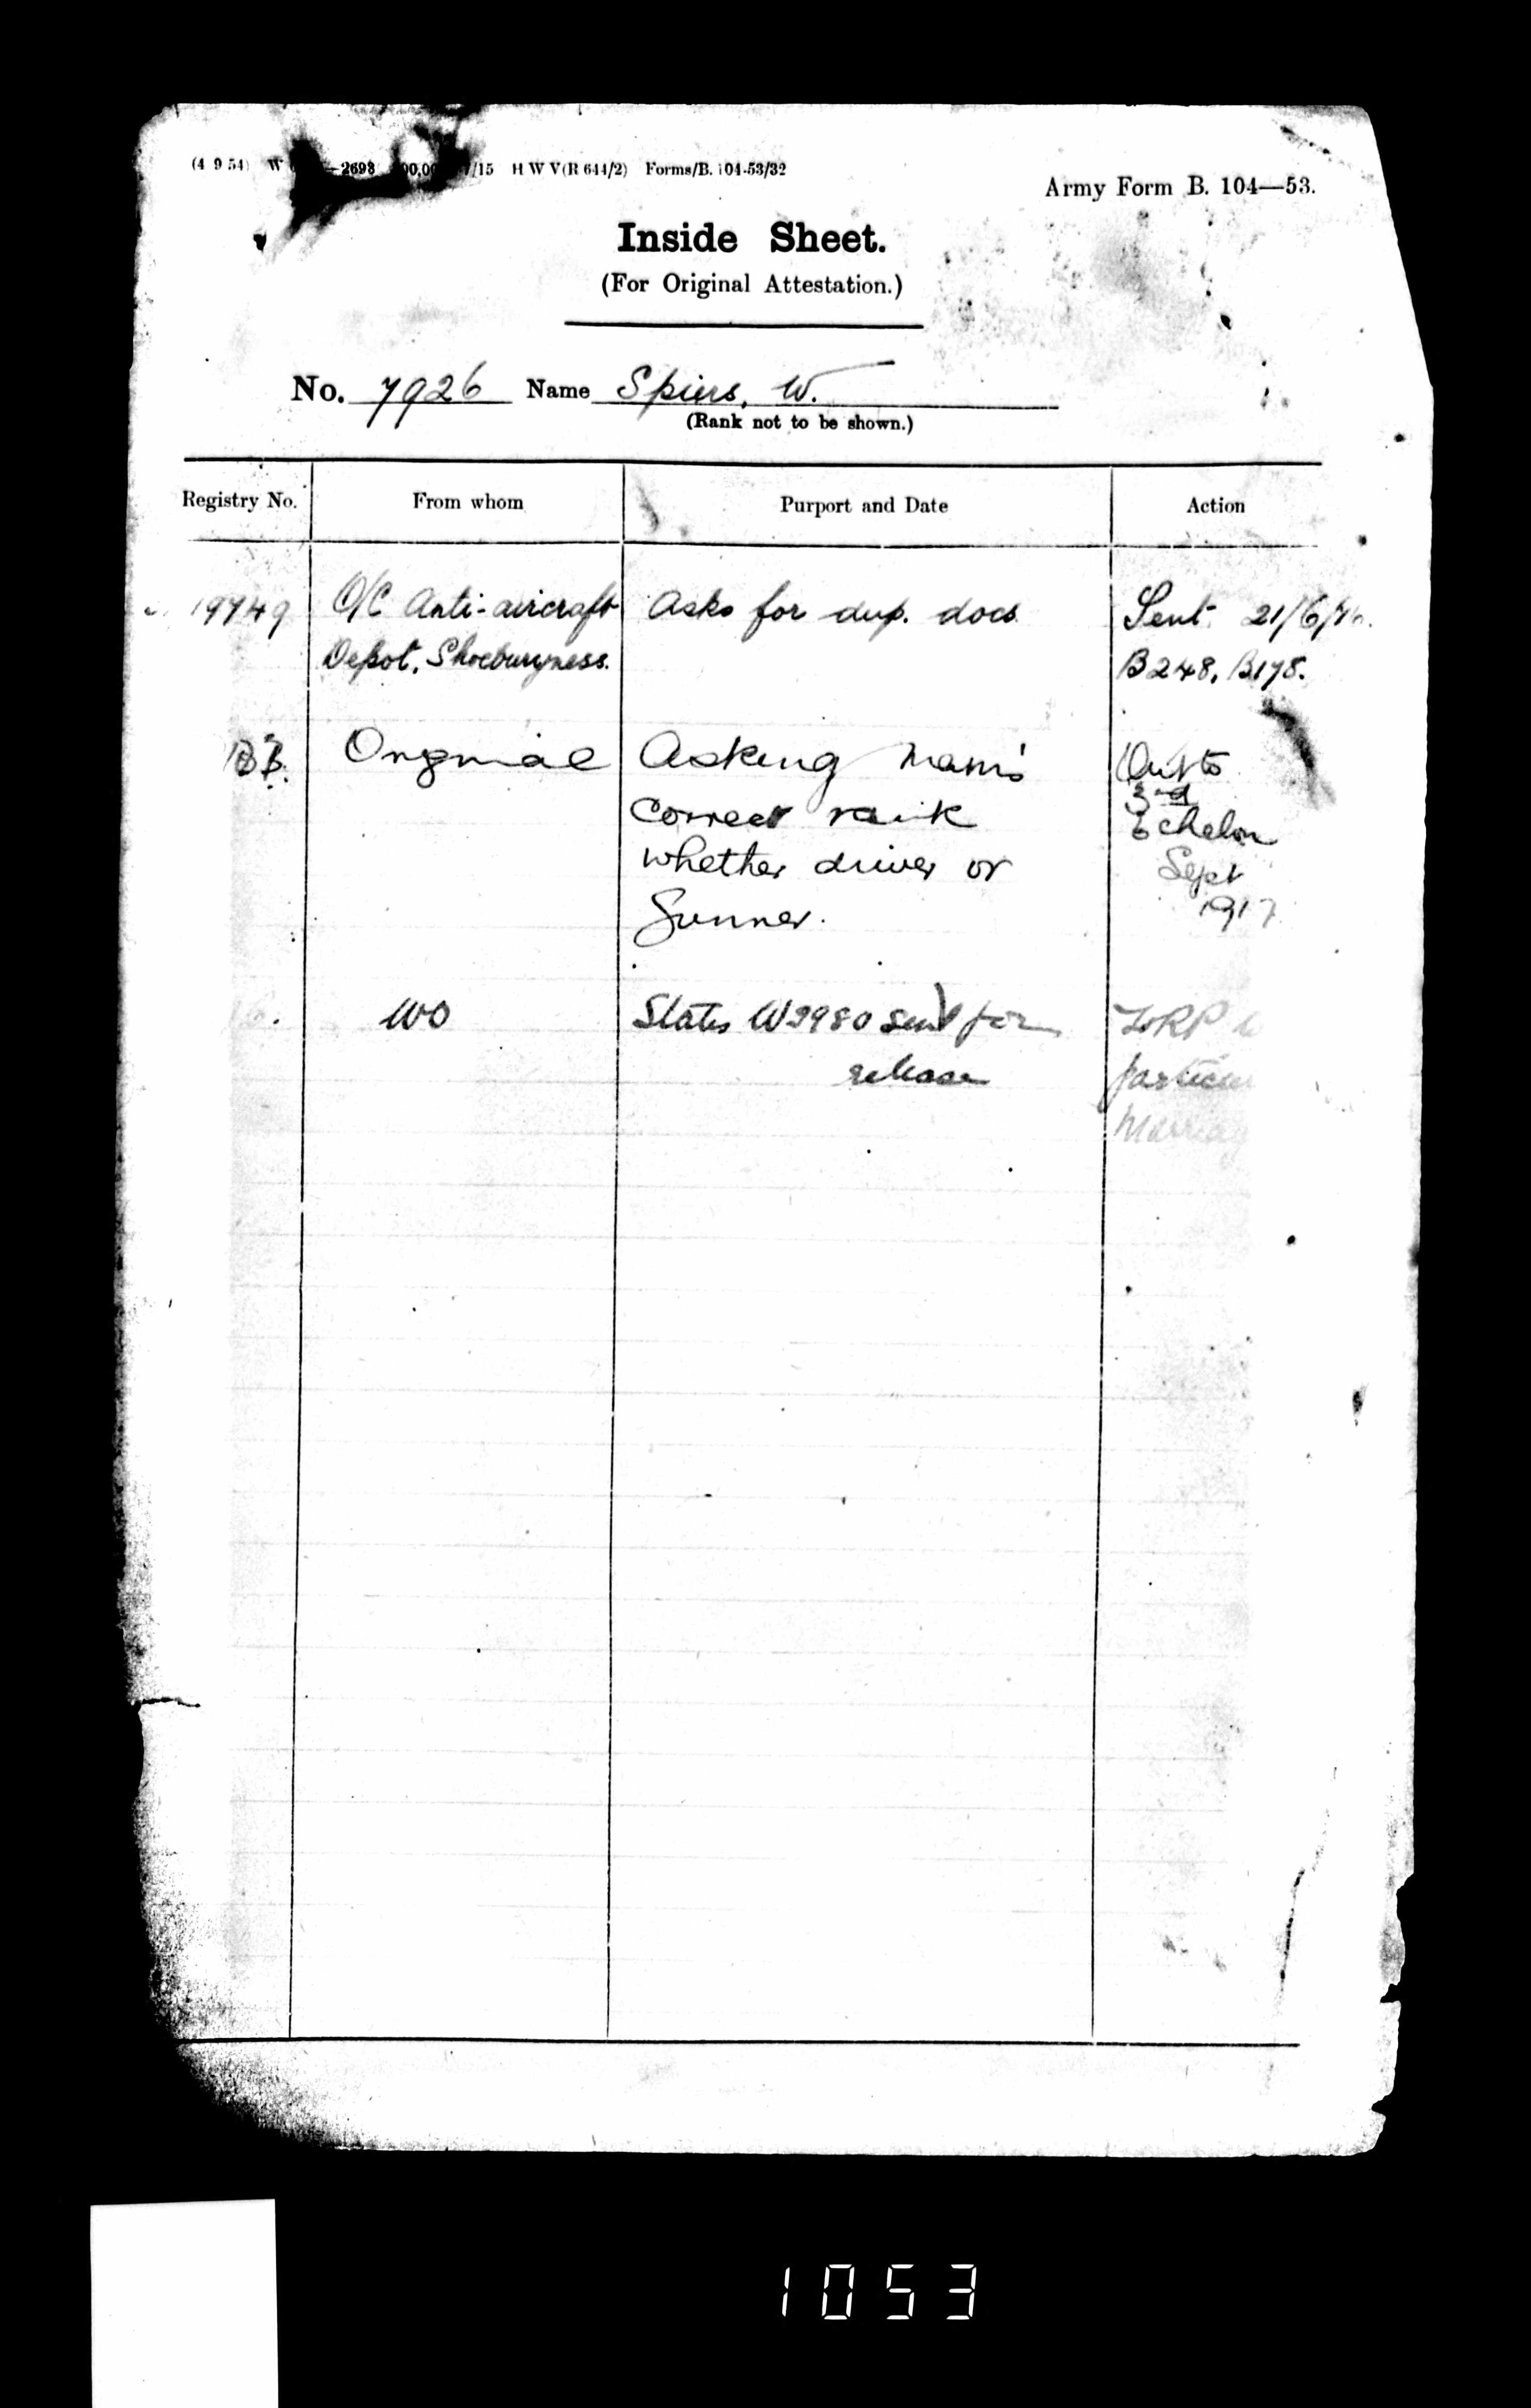 (4 9 54) W —2698 00,00 /15 H W V(R 644/2) Forms/B. 104-53/32
Army Form B. 104—53.
Inside Sheet.
(For Original Attestation.)
No. 7926 Name Spiers, W.
(Rank not to be shown.)
Registry No. From whom Purport and Date Action
19749 O/C Anti-aircraft Asks for dup. docs Sent 21/6/16.
Depot, Shoeburyness. B248, B178.
Original Asking man's Out to
correct rank 3rd
whether driver or Echelon
Gunner. Sept
1917
WO States W3980 sent for
release
1053